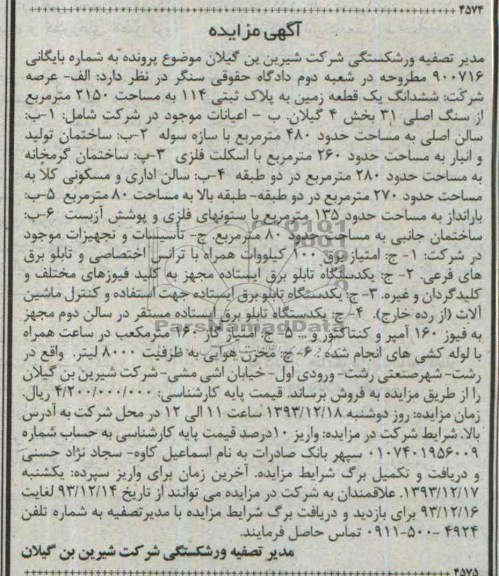 ۴۵۷۴
آگهی مزایده
مدیر تصفیه ورشکستگی شرکت شیرین بن گیلان موضوع پرونده به شماره بایگانی
۹۰۰۷۱۶ مطروحه در شعبه دوم دادگاه حقوقی سنگر در نظر دارد: الف- عرصه
شرکت: ششدانگ یک قطعه زمین به پلاک ثبتی ۱۱۴ به مساحت ۲۱۵۰ مترمربع
از سنگ اصلی ۳۱ بخش ۴ گیلان. ب - اعیانات موجود در شرکت شامل: ۱-ب:
سالن اصلی به مساحت حدود ۴۸۰ مترمربع با سازه سوله ۲-ب: ساختمان تولید
و انبار به مساحت حدود ۲۶۰ مترمربع با اسکلت فلزی ۳-ب: ساختمان گرمخانه
به مساحت حدود ۲۸۰ مترمربع در دو طبقه ۴-ب: سالن اداری و مسکونی کلا به
مساحت حدود ۲۷۰ مترمربع در دو طبقه- طبقه بالا به مساحت ۸۰ مترمربع ۵-ب:
بارانداز به مساحت حدود ۱۳۵ مترمربع با ستونهای فلزی و پوشش آزبست ۶-ب:
ساختمان جانبی به مساحت حدود ۸۰ مترمربع. ج- تأسیسات و تجهیزات موجود
در شرکت: ۱- ج: امتیاز برق ۱۰۰ کیلووات همراه با ترانس اختصاصی و تابلو برق
های فرعی. ۲- ج: یکدستگاه تابلو برق ایستاده مجهز به کلید فیوزهای مختلف و
کلیدگردان و غیره. ۳- ج: یکدستگاه تابلو برق ایستاده جهت استفاده و کنترل ماشین
آلات (از رده خارج). ۴- ج: یکدستگاه تابلو برق ایستاده مستقر در سالن دوم مجهز
به فیوز ۱۶۰ آمپر و کنتاکتور و ... ۵- ج: امتیاز گاز ۱۶۰ مترمکعب در ساعت همراه
با لوله کشی های انجام شده . ۶- ج: مخزن هوایی به ظرفیت ۸۰۰۰ لیتر. واقع در
رشت- شهرصنعتی رشت- ورودی اول- خیابان اشی مشی- شرکت شیرین بن گیلان
را از طریق مزایده به فروش برساند. قیمت پایه کارشناسی: ۴/۲۰۰/۰۰۰/۰۰۰ ریال.
زمان مزایده: روز دوشنبه ۱۳۹۳/۱۲/۱۸ ساعت ۱۱ الی ۱۲ در محل شرکت به آدرس
بالا. شرایط شرکت در مزایده: واریز ۱۰درصد قیمت پایه کارشناسی به حساب شماره
۰۱۰۷۴۰۱۹۵۶۰۰۹ سپهر بانک صادرات به نام اسماعیل کاوه- سجاد نژاد حسنی
و دریافت و تکمیل برگ شرایط مزایده. آخرین زمان برای واریز سپرده: یکشنبه
۱۳۹۳/۱۲/۱۷. علاقمندان به شرکت در مزایده می توانند از تاریخ ۹۳/۱۲/۱۴ لغایت
۹۳/۱۲/۱۶ برای بازدید و دریافت برگ شرایط مزایده با مدیرتصفیه به شماره تلفن
۴۹۲۴ -۵۰۰-۰۹۱۱ تماس حاصل فرمایند.
مدیر تصفیه ورشکستگی شرکت شیرین بن گیلان
۴۵۷۵